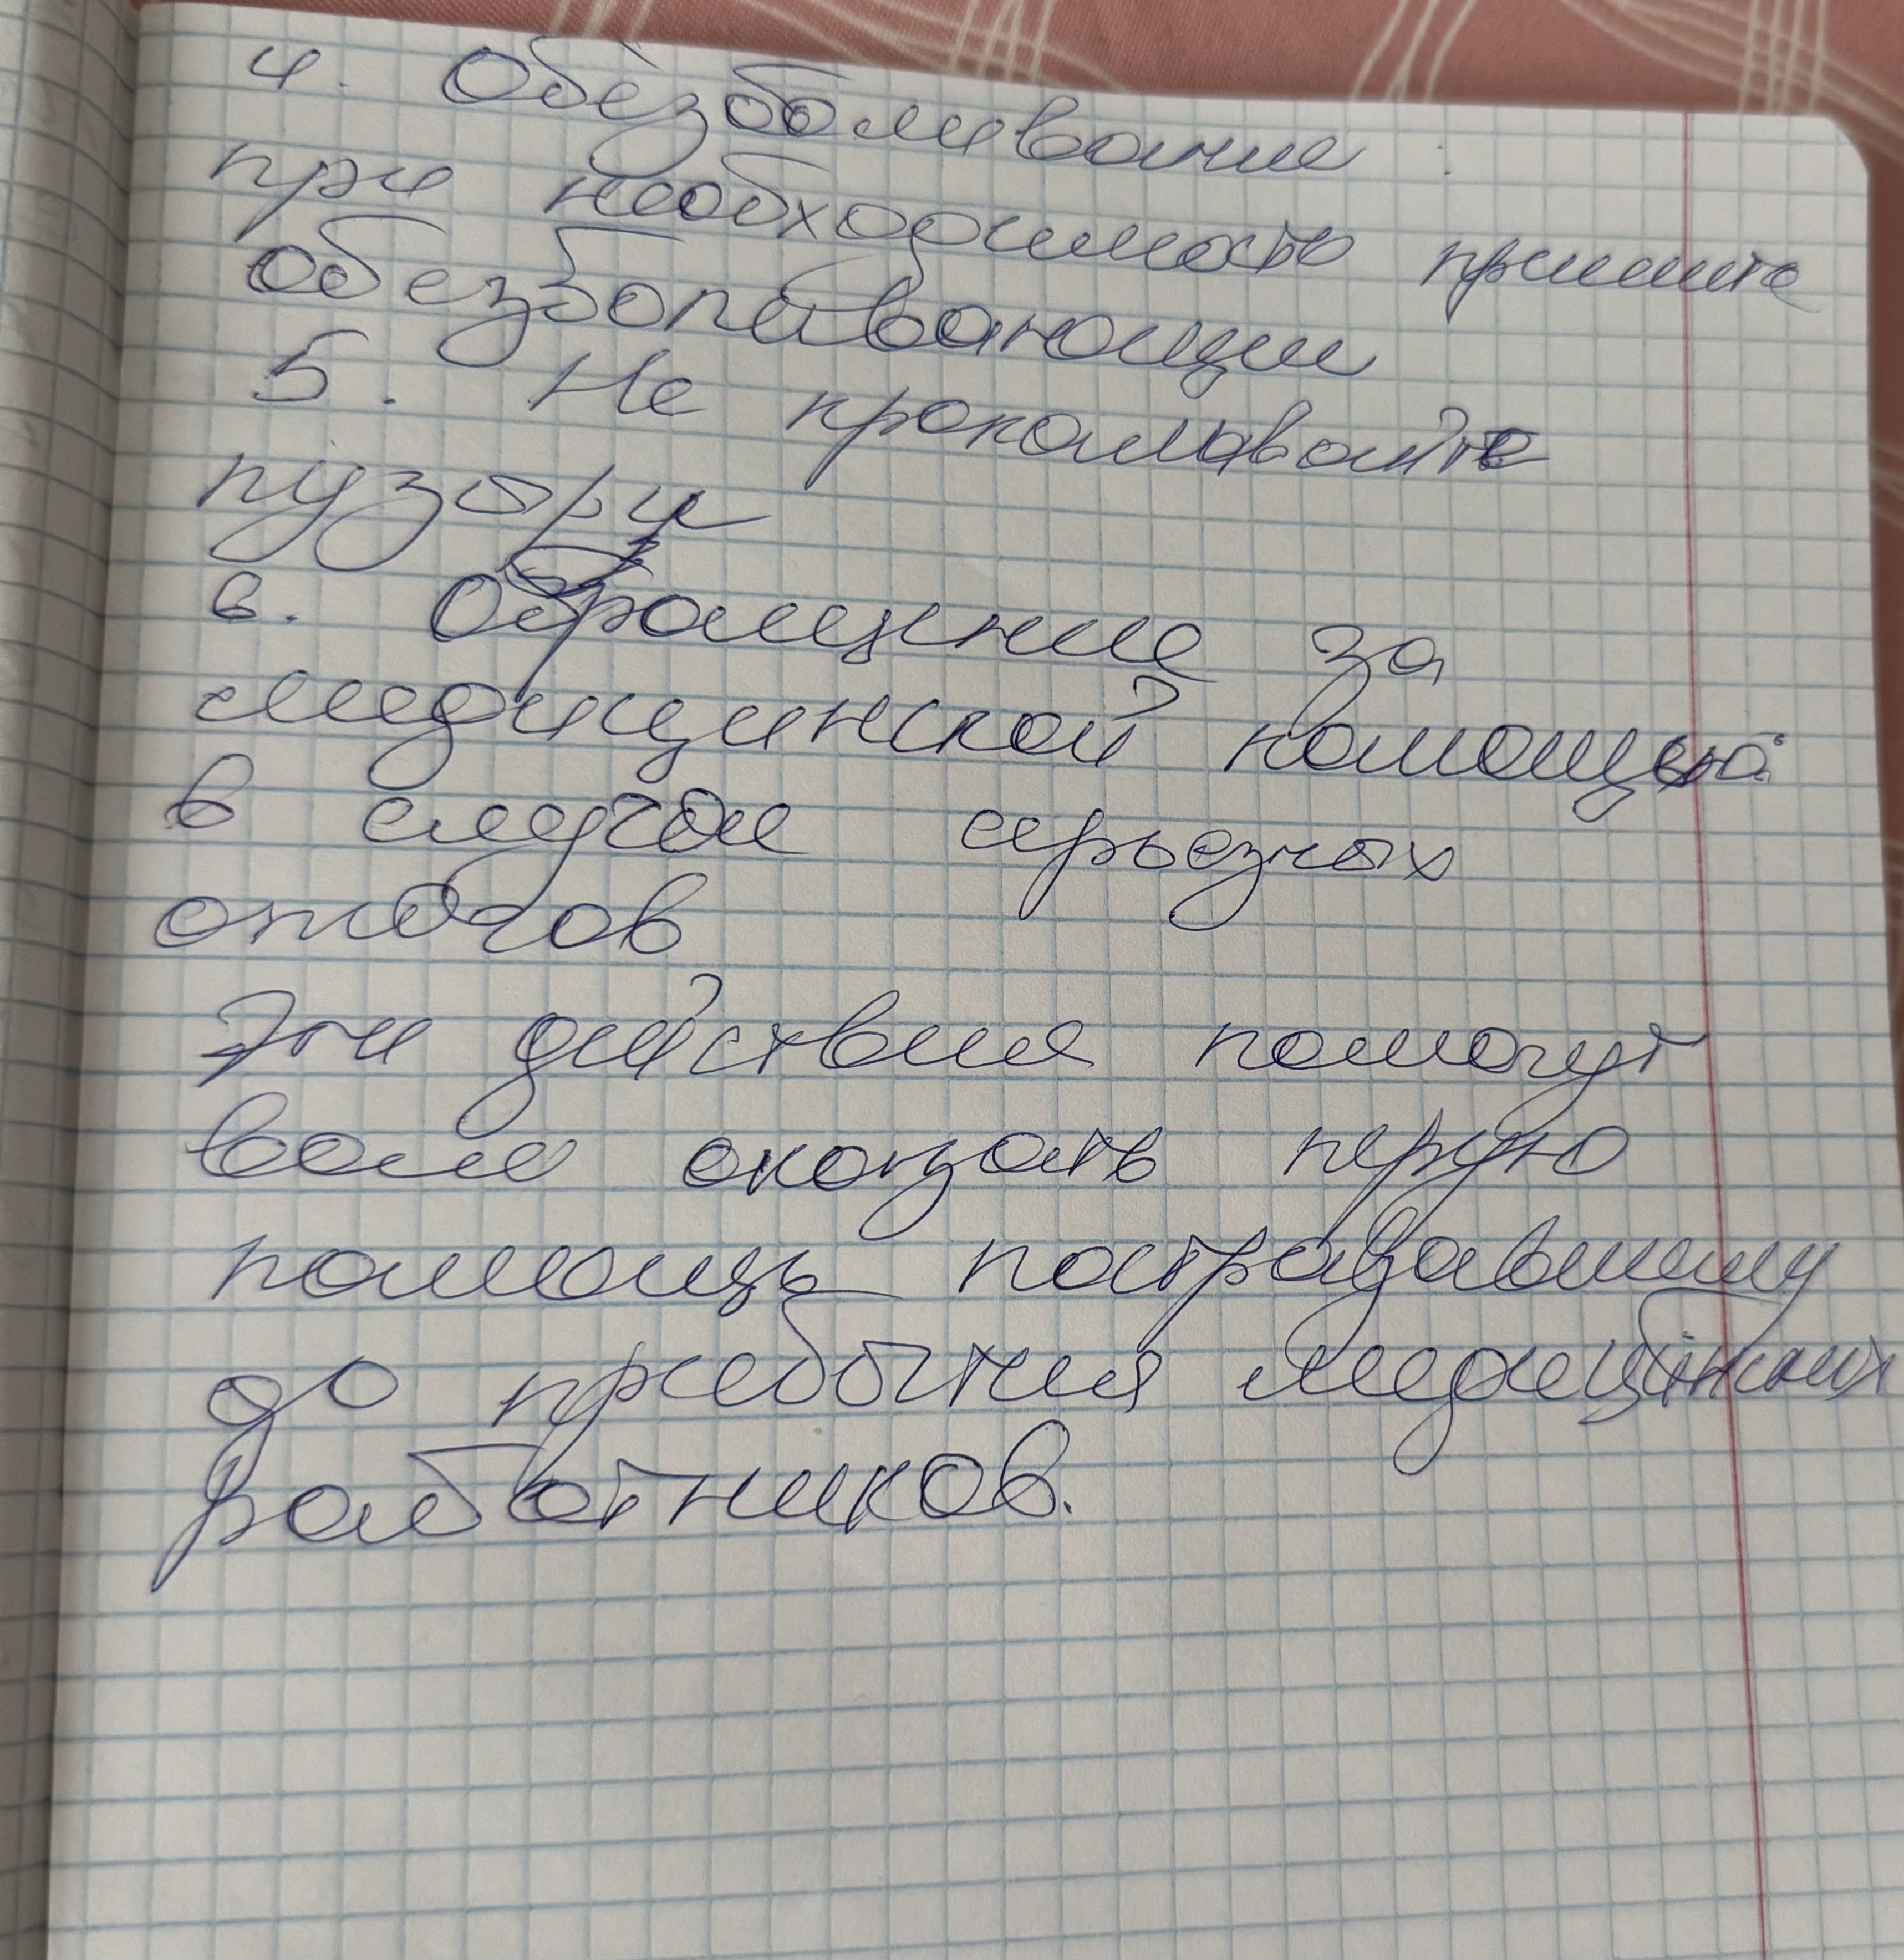 4. Обезболивание:
при необходимость примите
обезболивающии
5. Не прокаливайте
пузыри
6. Обращение за
медицинской помощью:
в случае серьезных
ожогов
Эти действия помогут
вам оказать перую
помощь пострадавшему
до прибытия медицинских
работников.